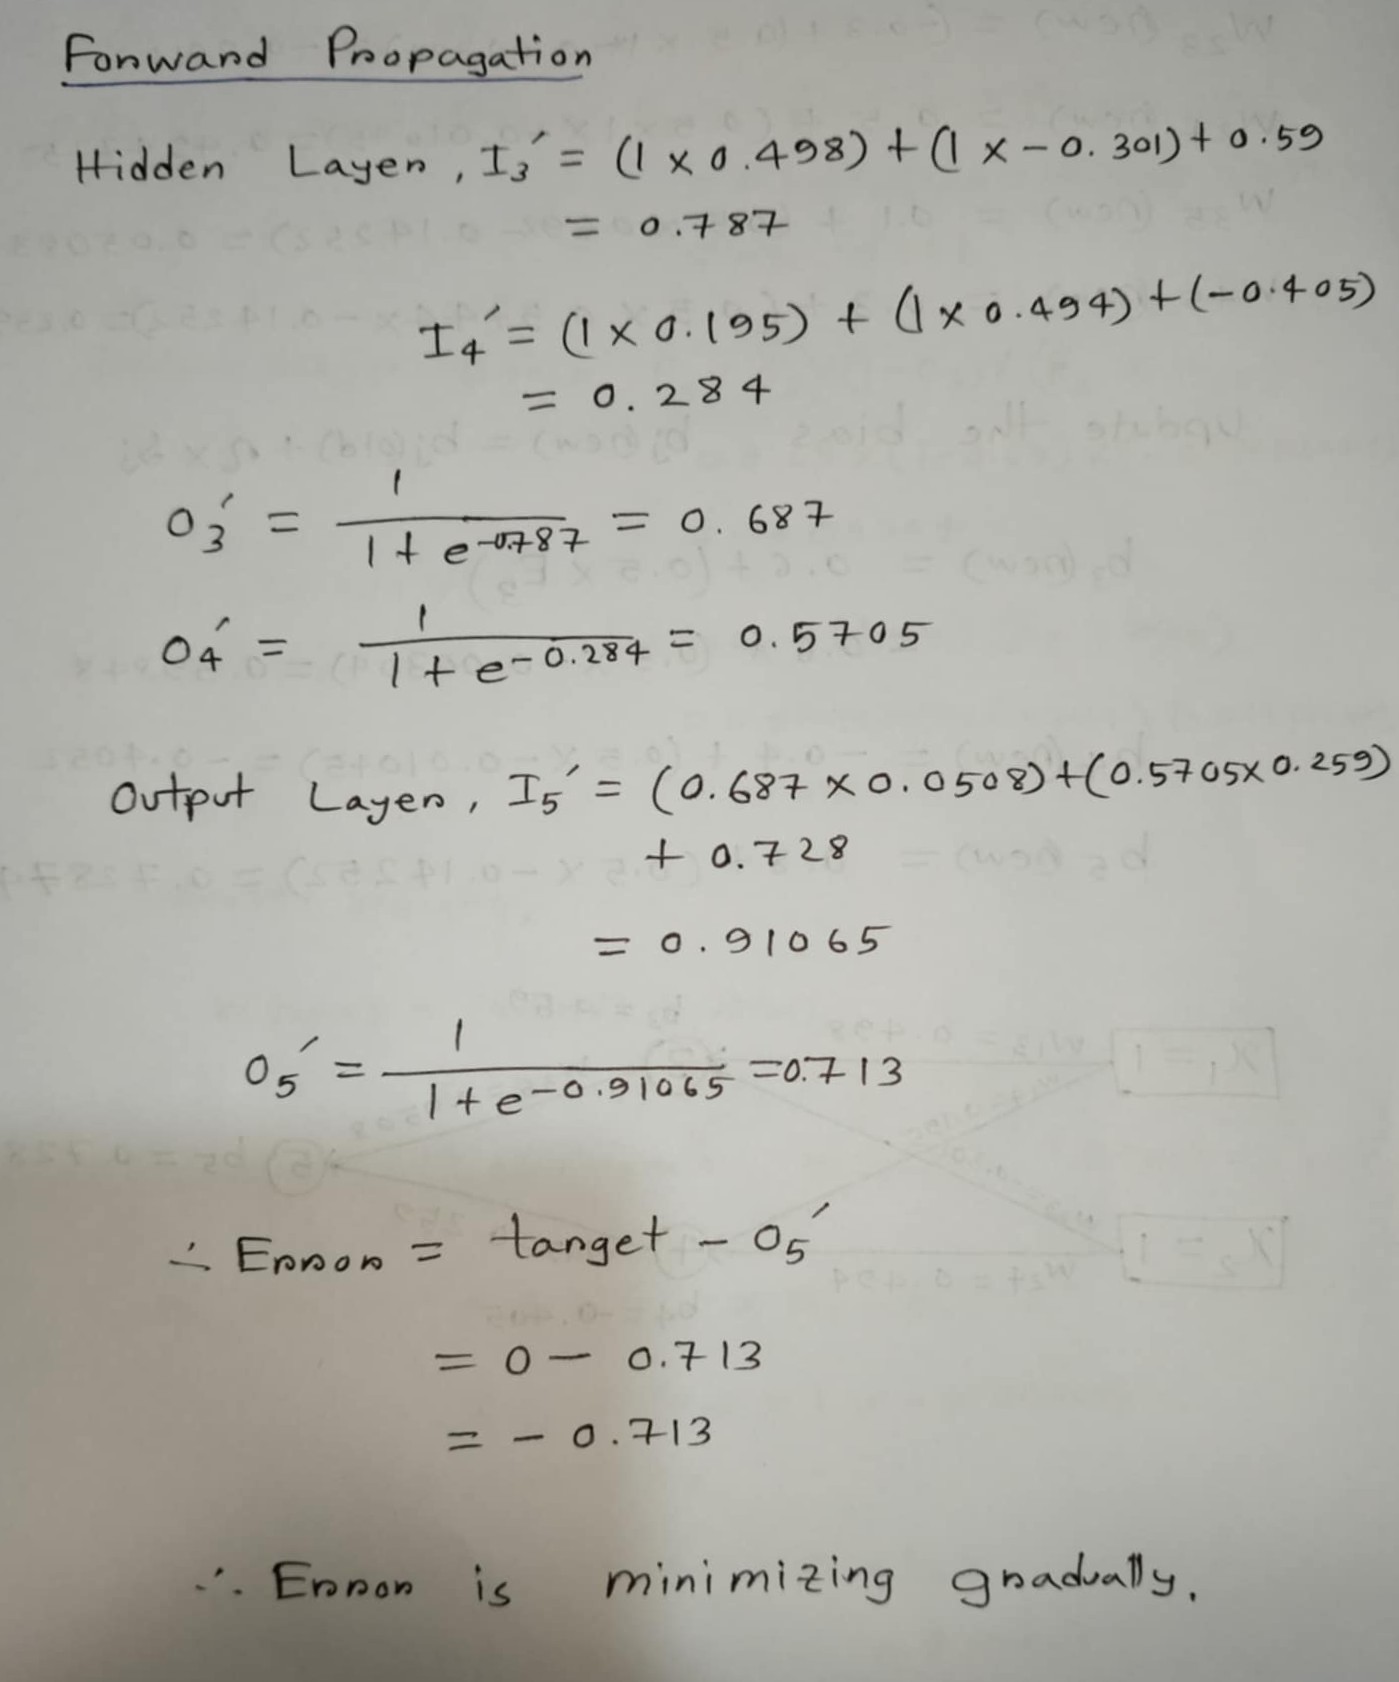 Forward Propagation
Hidden Layer, I₃′ = (1 × 0.498) + (1 × −0.301) + 0.59
= 0.787
I₄′ = (1 × 0.195) + (1 × 0.494) + (−0.405)
= 0.284
O₃′ = 1 / (1 + e^−0.787) = 0.687
O₄′ = 1 / (1 + e^−0.284) = 0.5705
Output Layer, I₅′ = (0.687 × 0.0508) + (0.5705 × 0.259)
+ 0.728
= 0.91065
O₅′ = 1 / (1 + e^−0.91065) = 0.713
∴ Error = target − O₅′
= 0 − 0.713
= − 0.713
∴ Error is minimizing gradually.